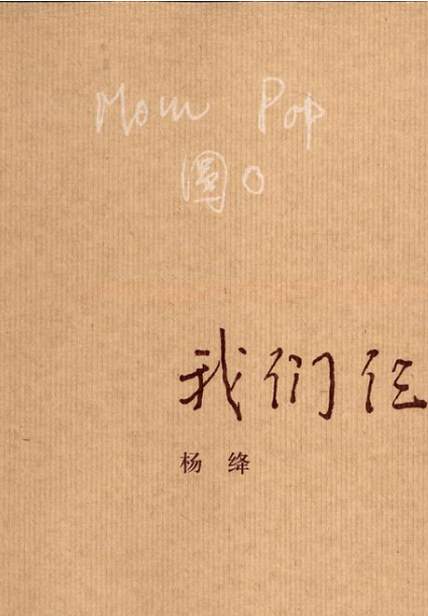 Mom Pop
圓O
我们仨
杨绛